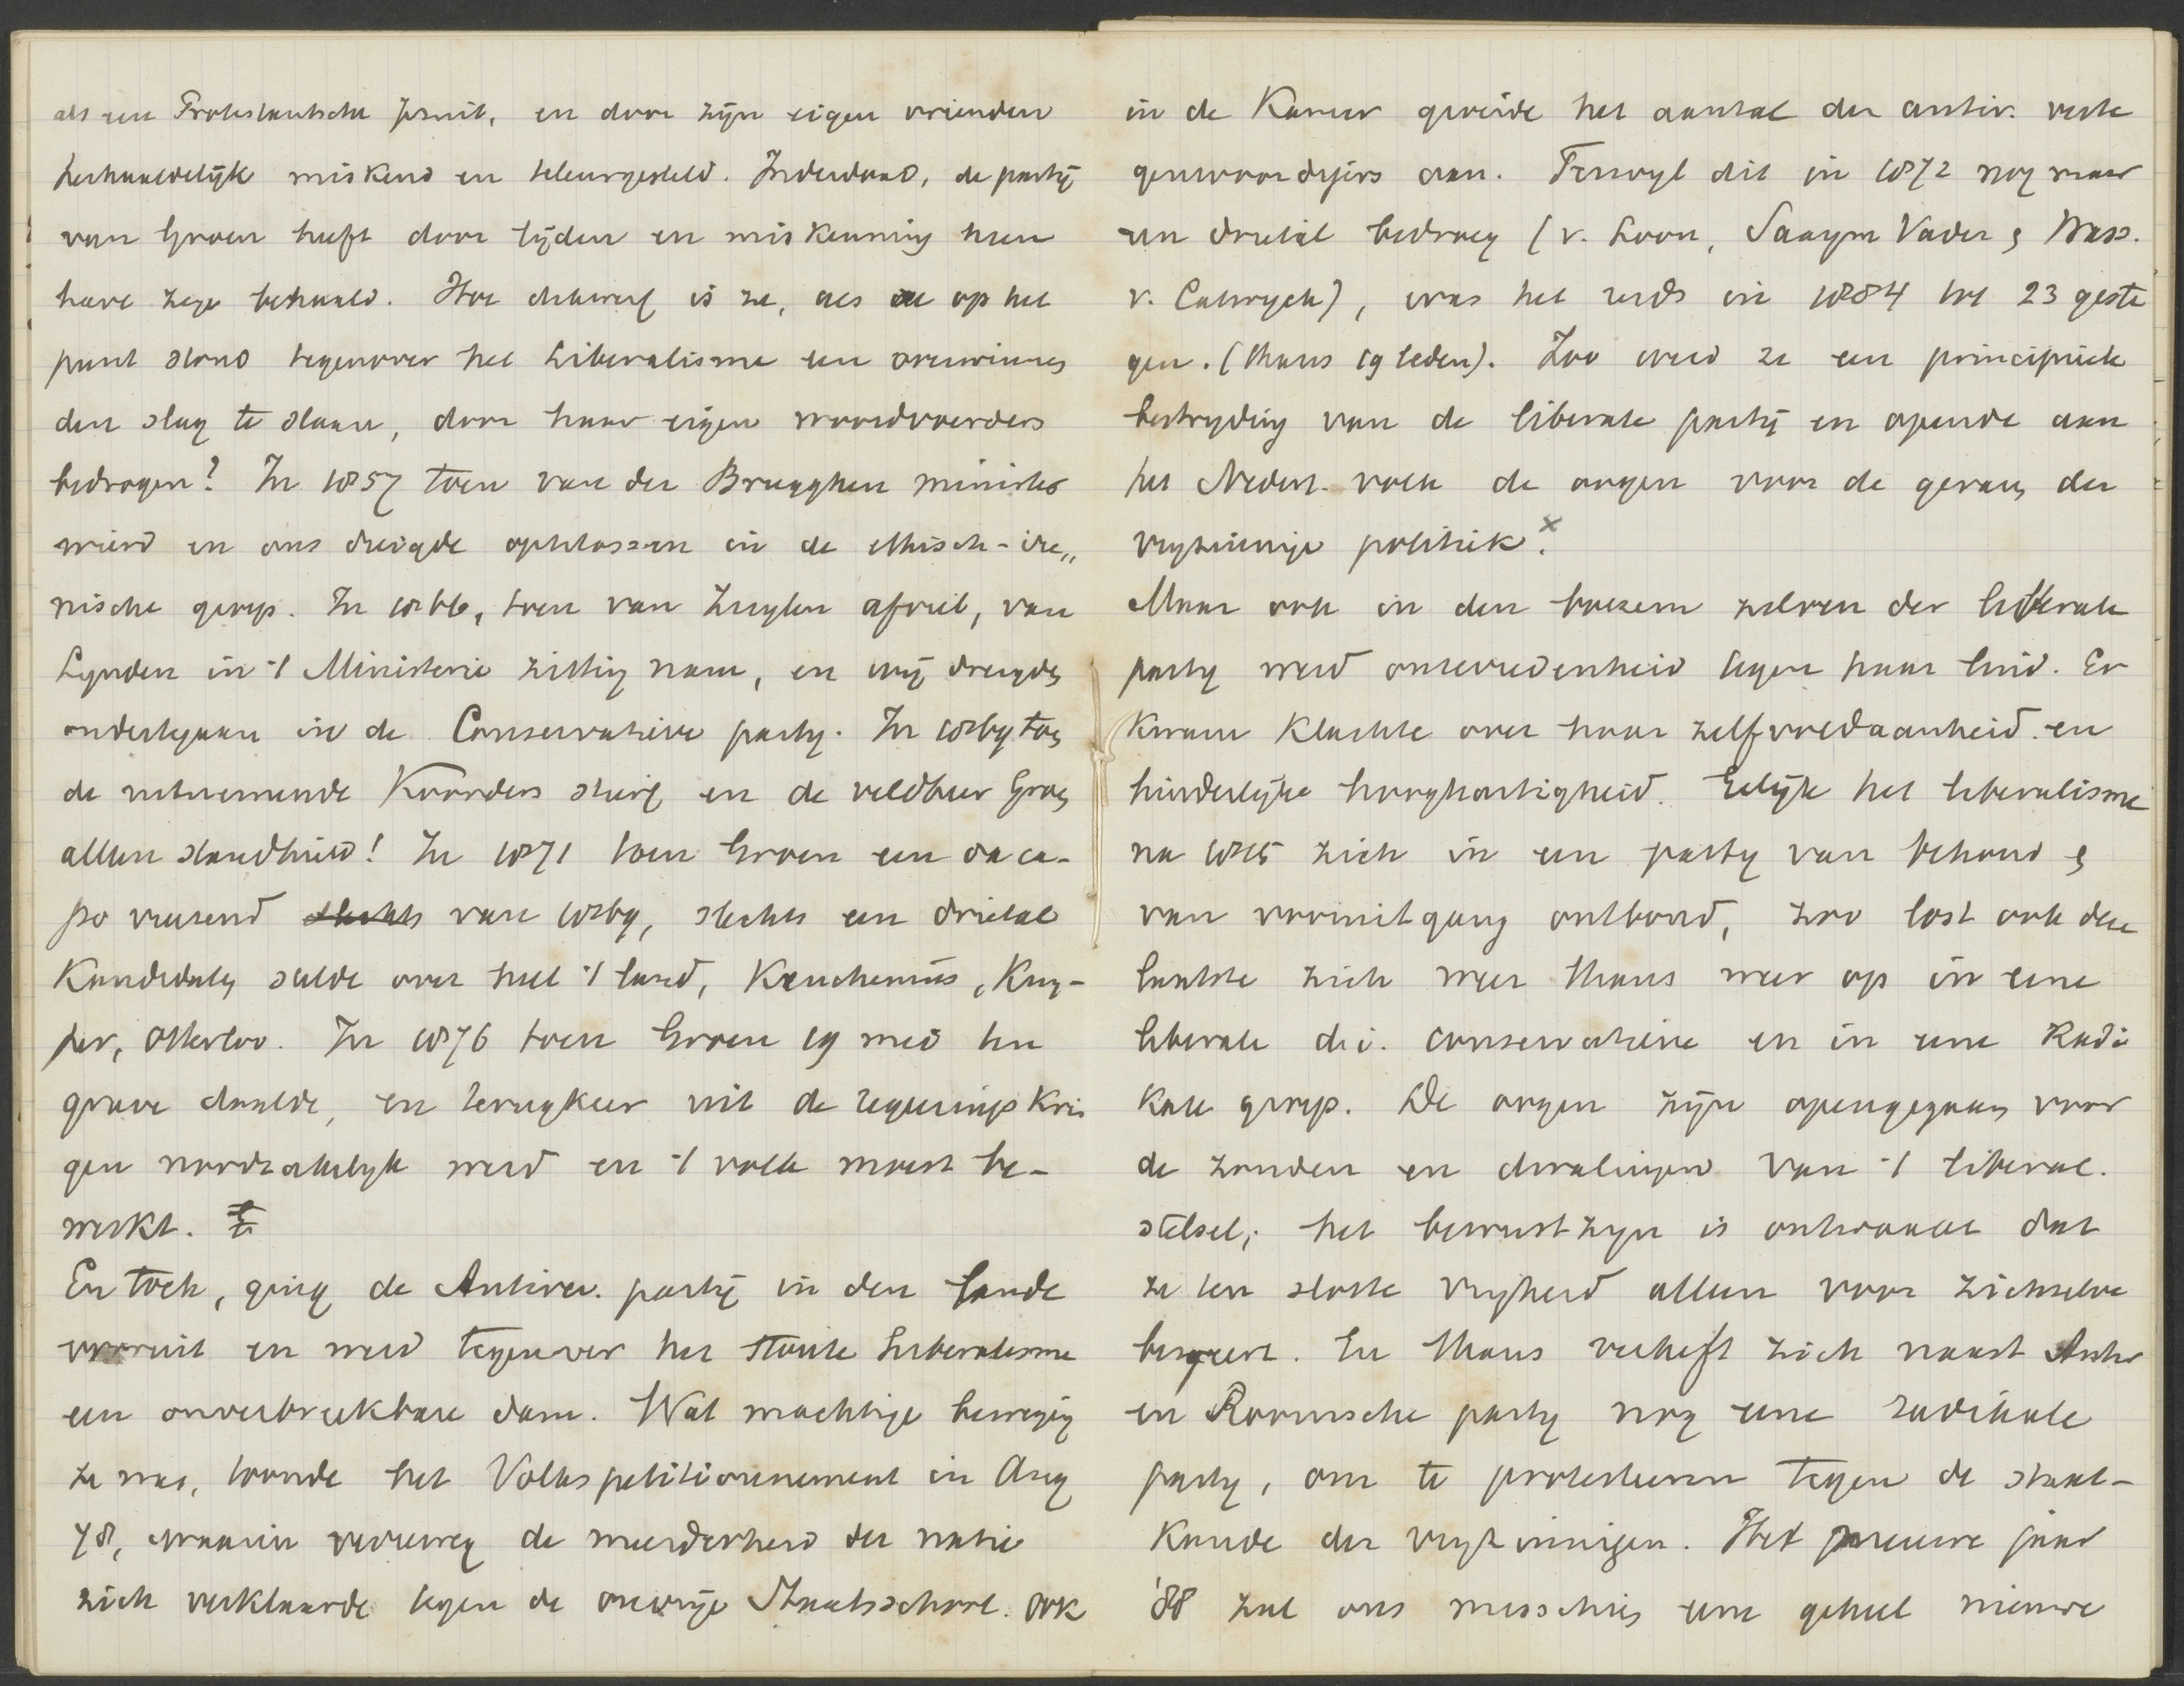 als een Protestantsche Jesuit, en door zijn eigen vrienden
herhaaldelijk miskend en teleurgesteld. Inderdaad, de partij
van Groen heeft door lijden en miskenning heen
hare zege behaald. Hoe dikwerf is ze, als ze op het
punt stond tegenover het Liberalisme een overwinnen
den slag te slaan, door haar eigen woordvoerders
bedrogen? In 1857 toen van der Brugghen minister
werd en ons dreigde optelossen in de ethisch-ire„
nische groep. In 1866, toen van Zuylen afviel, van
Lynden in 't Ministerie zitting nam, en wij dreigden
ondertegaan in de Conservatieve party. In 1869 toen
de uitnemende Koorders stierf en de veldheer Groen
alleen standhield! In 1871 toen Groen een da ca-
po vreezend slechts van 1869, slechts een drietal
Kandidaten stelde over heel 't land, Keuchenius, Kuy-
per, Otterloo. In 1876 toen Groen 19 mei ten
grave daalde, en terugkeer uit de regeerings kri
gen noodzakelyk werd en 't volk moest be-
werkt.
En toch, ging de Antirev. partij in den lande
vooruit en werd tegenover het stoute Liberalisme
een onverbreekbare dam. Wat machtige beweging
ze was, toonde het Volkspetitionnement in Aug
78, waarin verreweg de meerderheid der natie
zich verklaarde tegen de onvrije Staatsschool. Ook
in de Kamer groeide het aantal der antir. verte
genwoordigers aan. Terwyl dit in 1872 nog maar
een drietal bedroeg (v. Loon, Saaym Vader en Wass.
v. Catwyck), was het reeds in 1884 tot 23 geste
gen. (thans 19 leden). Zoo werd ze een principieele
bestryding van de liberale partij en opende aan
het Nederl. volk de oogen voor de gevaren der
vryzinnige politiek. x
Maar ook in den boezem zelven der liberale
party werd ontevredenheid tegen haar luid. Er
kwam klachte over haar zelfvoldaanheid en
hinderlijke hooghartigheid. Gelijk het liberalisme
na 1845 zich in een party van behoud en
van vooruitgang ontbond, zoo lost ook deze
laatste zich weer thans weer op in eene
liberale d.i. conservatieve en in eene Radi
kale groep. De oogen zijn opengegaan voor
de zonden en dwalingen van 't liberal.
stelsel; het bewustzyn is ontwaakt dat
ze ten slotte vryheid alleen voor zichzelve
begeert. En thans verheft zich naast Antir
en Roomsche party nog eene radikale
party, om te protesteeren tegen de staat-
kunde der vryzinnigen. Het nieuwe jaar
'88 zal ons misschien eene geheel nieuwe